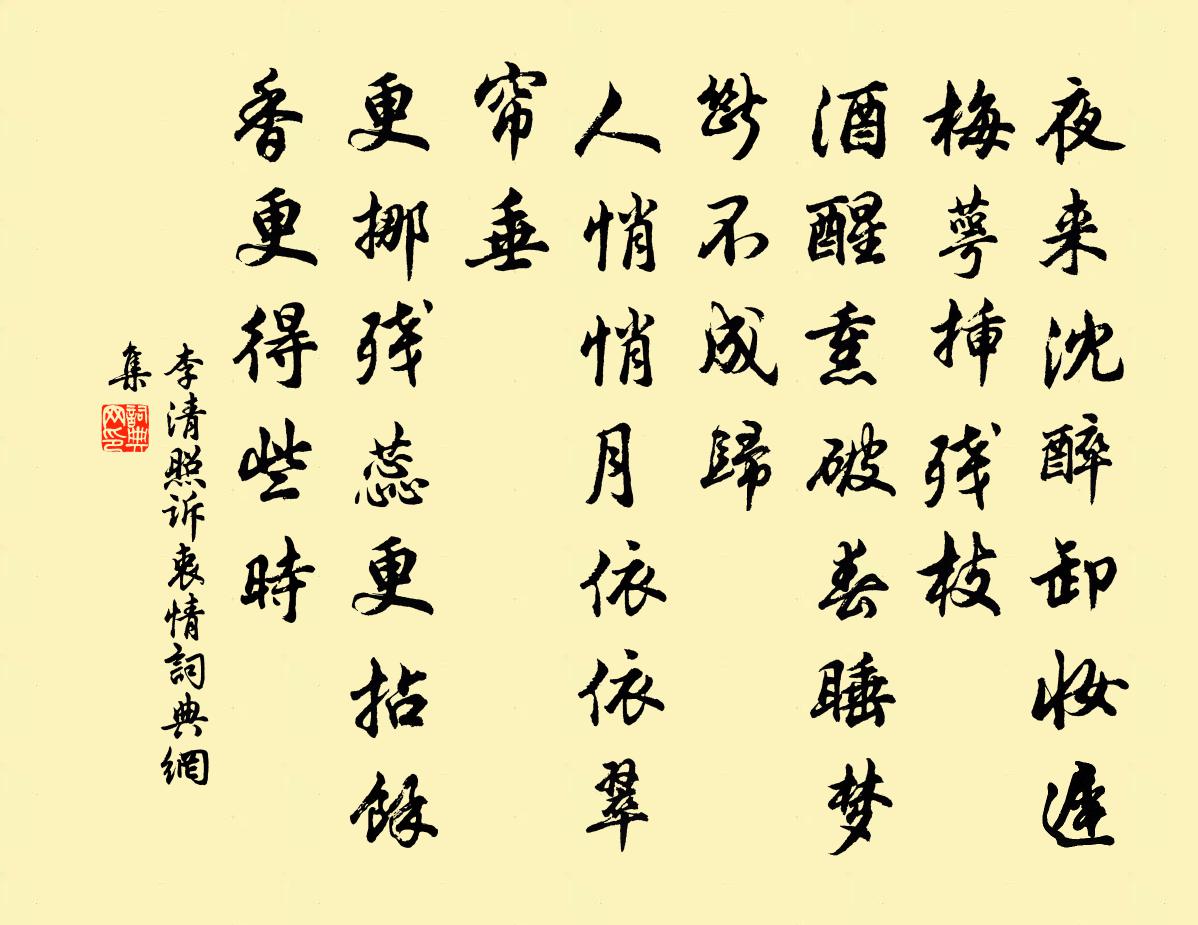 夜来沈醉卸妆遲
梅萼挿残枝
酒醒熏破春睡梦
斷不成歸
人悄悄月依依翠
帘垂
更挪残蕊更拈餘
香更得些時
李清照訴衷情詞典網
集
詞典网印